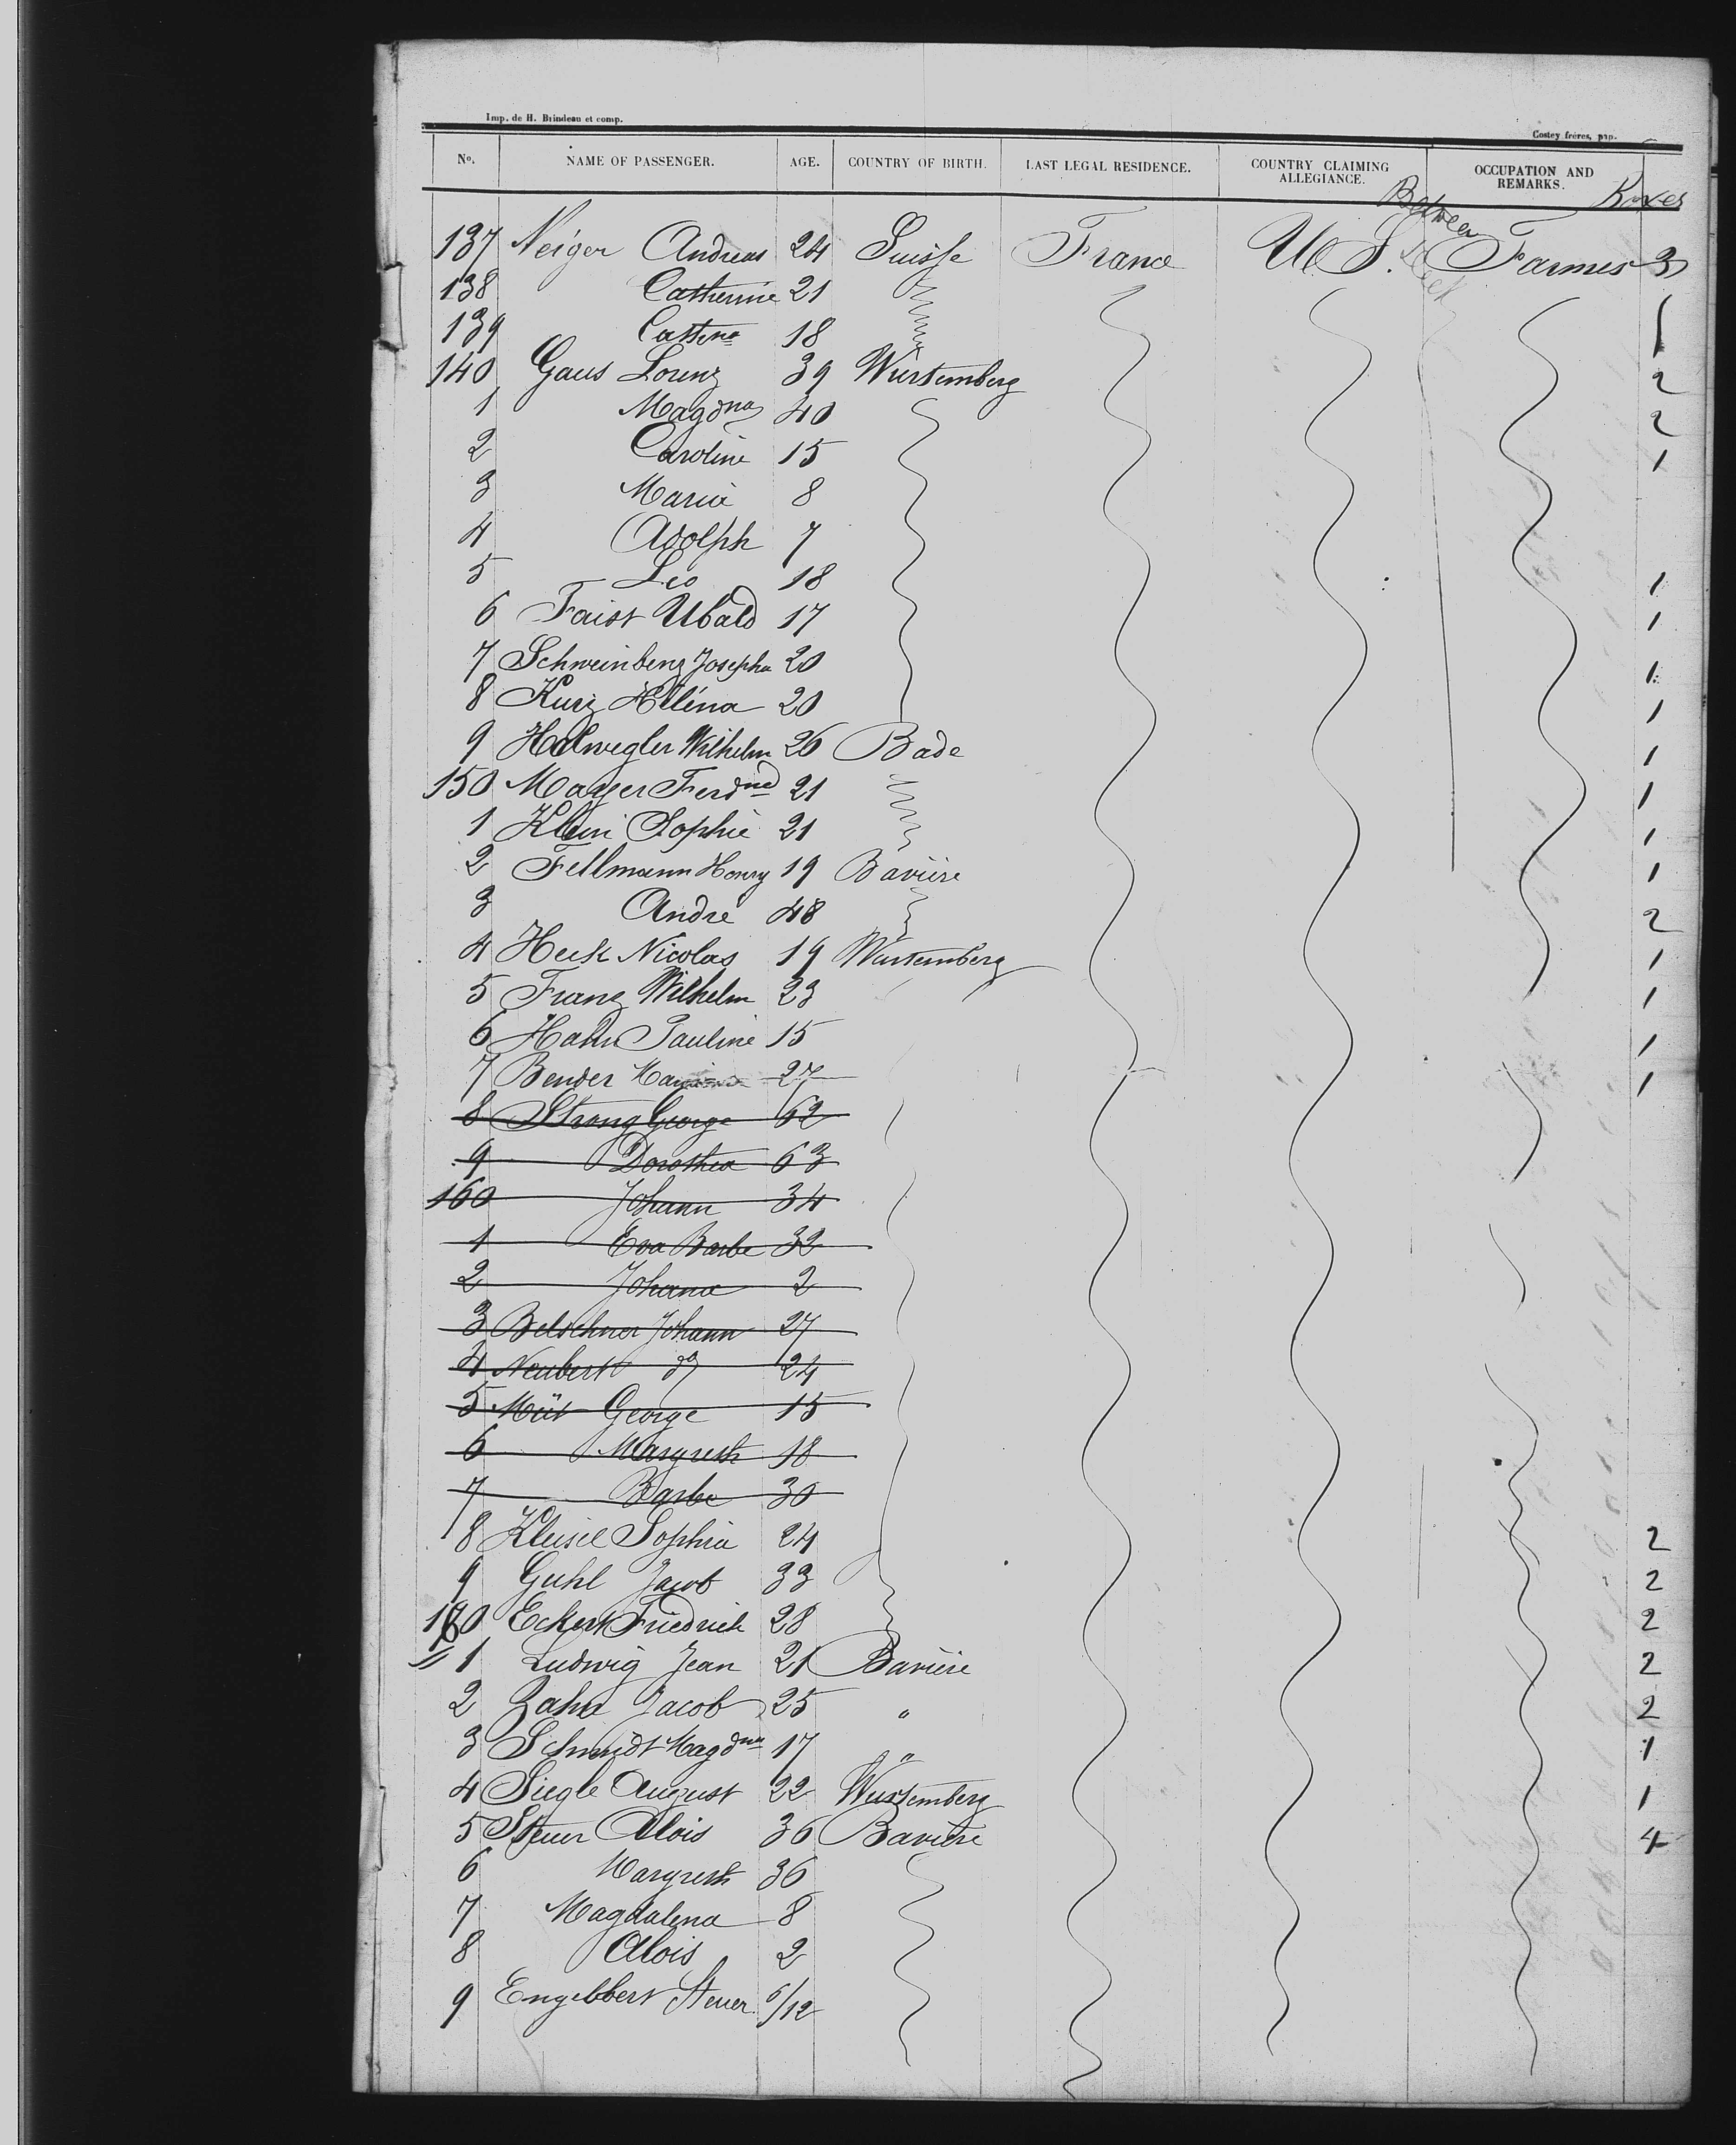 Imp. de H. Brindeau et comp.
Costey frères, pap.
No. NAME OF PASSENGER. AGE. COUNTRY OF BIRTH. LAST LEGAL RESIDENCE. COUNTRY CLAIMING ALLEGIANCE. OCCUPATION AND REMARKS. Boxes
Between
137 Neiger Andreas 24 Suisse France U S. Farmer 3
138 Catherine 21
139 18
140 Gaus Lorenz 39 Wurtemberg 2
1 Magdna 40 2
2 Caroline 15 1
3 Maria 8
4 Adolph 7
5 Leo 18 1
6 Faist Ubald 17 1
7 Schweinbenz Josepha 20 1
8 Kurz Héléna 20 1
9 Wilhelm 26 Bade 1
150 Mayer Ferdnd 21 1
1 Klein Sophie 21 1
2 Fellmann Henry 19 Bavière 1
3 André 48 2
4 Heck Nicolas 19 Wurtemberg 1
5 Franz Wilhelm 23 1
6 Hahn Pauline 15 1
7 Bender 27 1
8 Strong George 62
9 Dorothea 63
160 Johann 34
1 Eva Barbe 32
2 Johana 2
3 Belschner Johann 27
4 Neubert do 24
5 Müt George 15
6 Margreth 18
7 Barbe 30
8 Kleisel Sophia 24 2
9 Guhl Jacob 33 2
160 Eckert Friedrich 28 2
1 Ludwig Jean 21 Bavière 2
2 Zahn Jacob 25 " 2
3 Schmidt Magdna 17 " 1
4 Siegle August 22 Wurtemberg 1
5 Steuer Alois 36 Bavière 4
6 Margreth 36
7 Magdalena 8
8 Alois 2
9 Engelbert Steuer 6/12